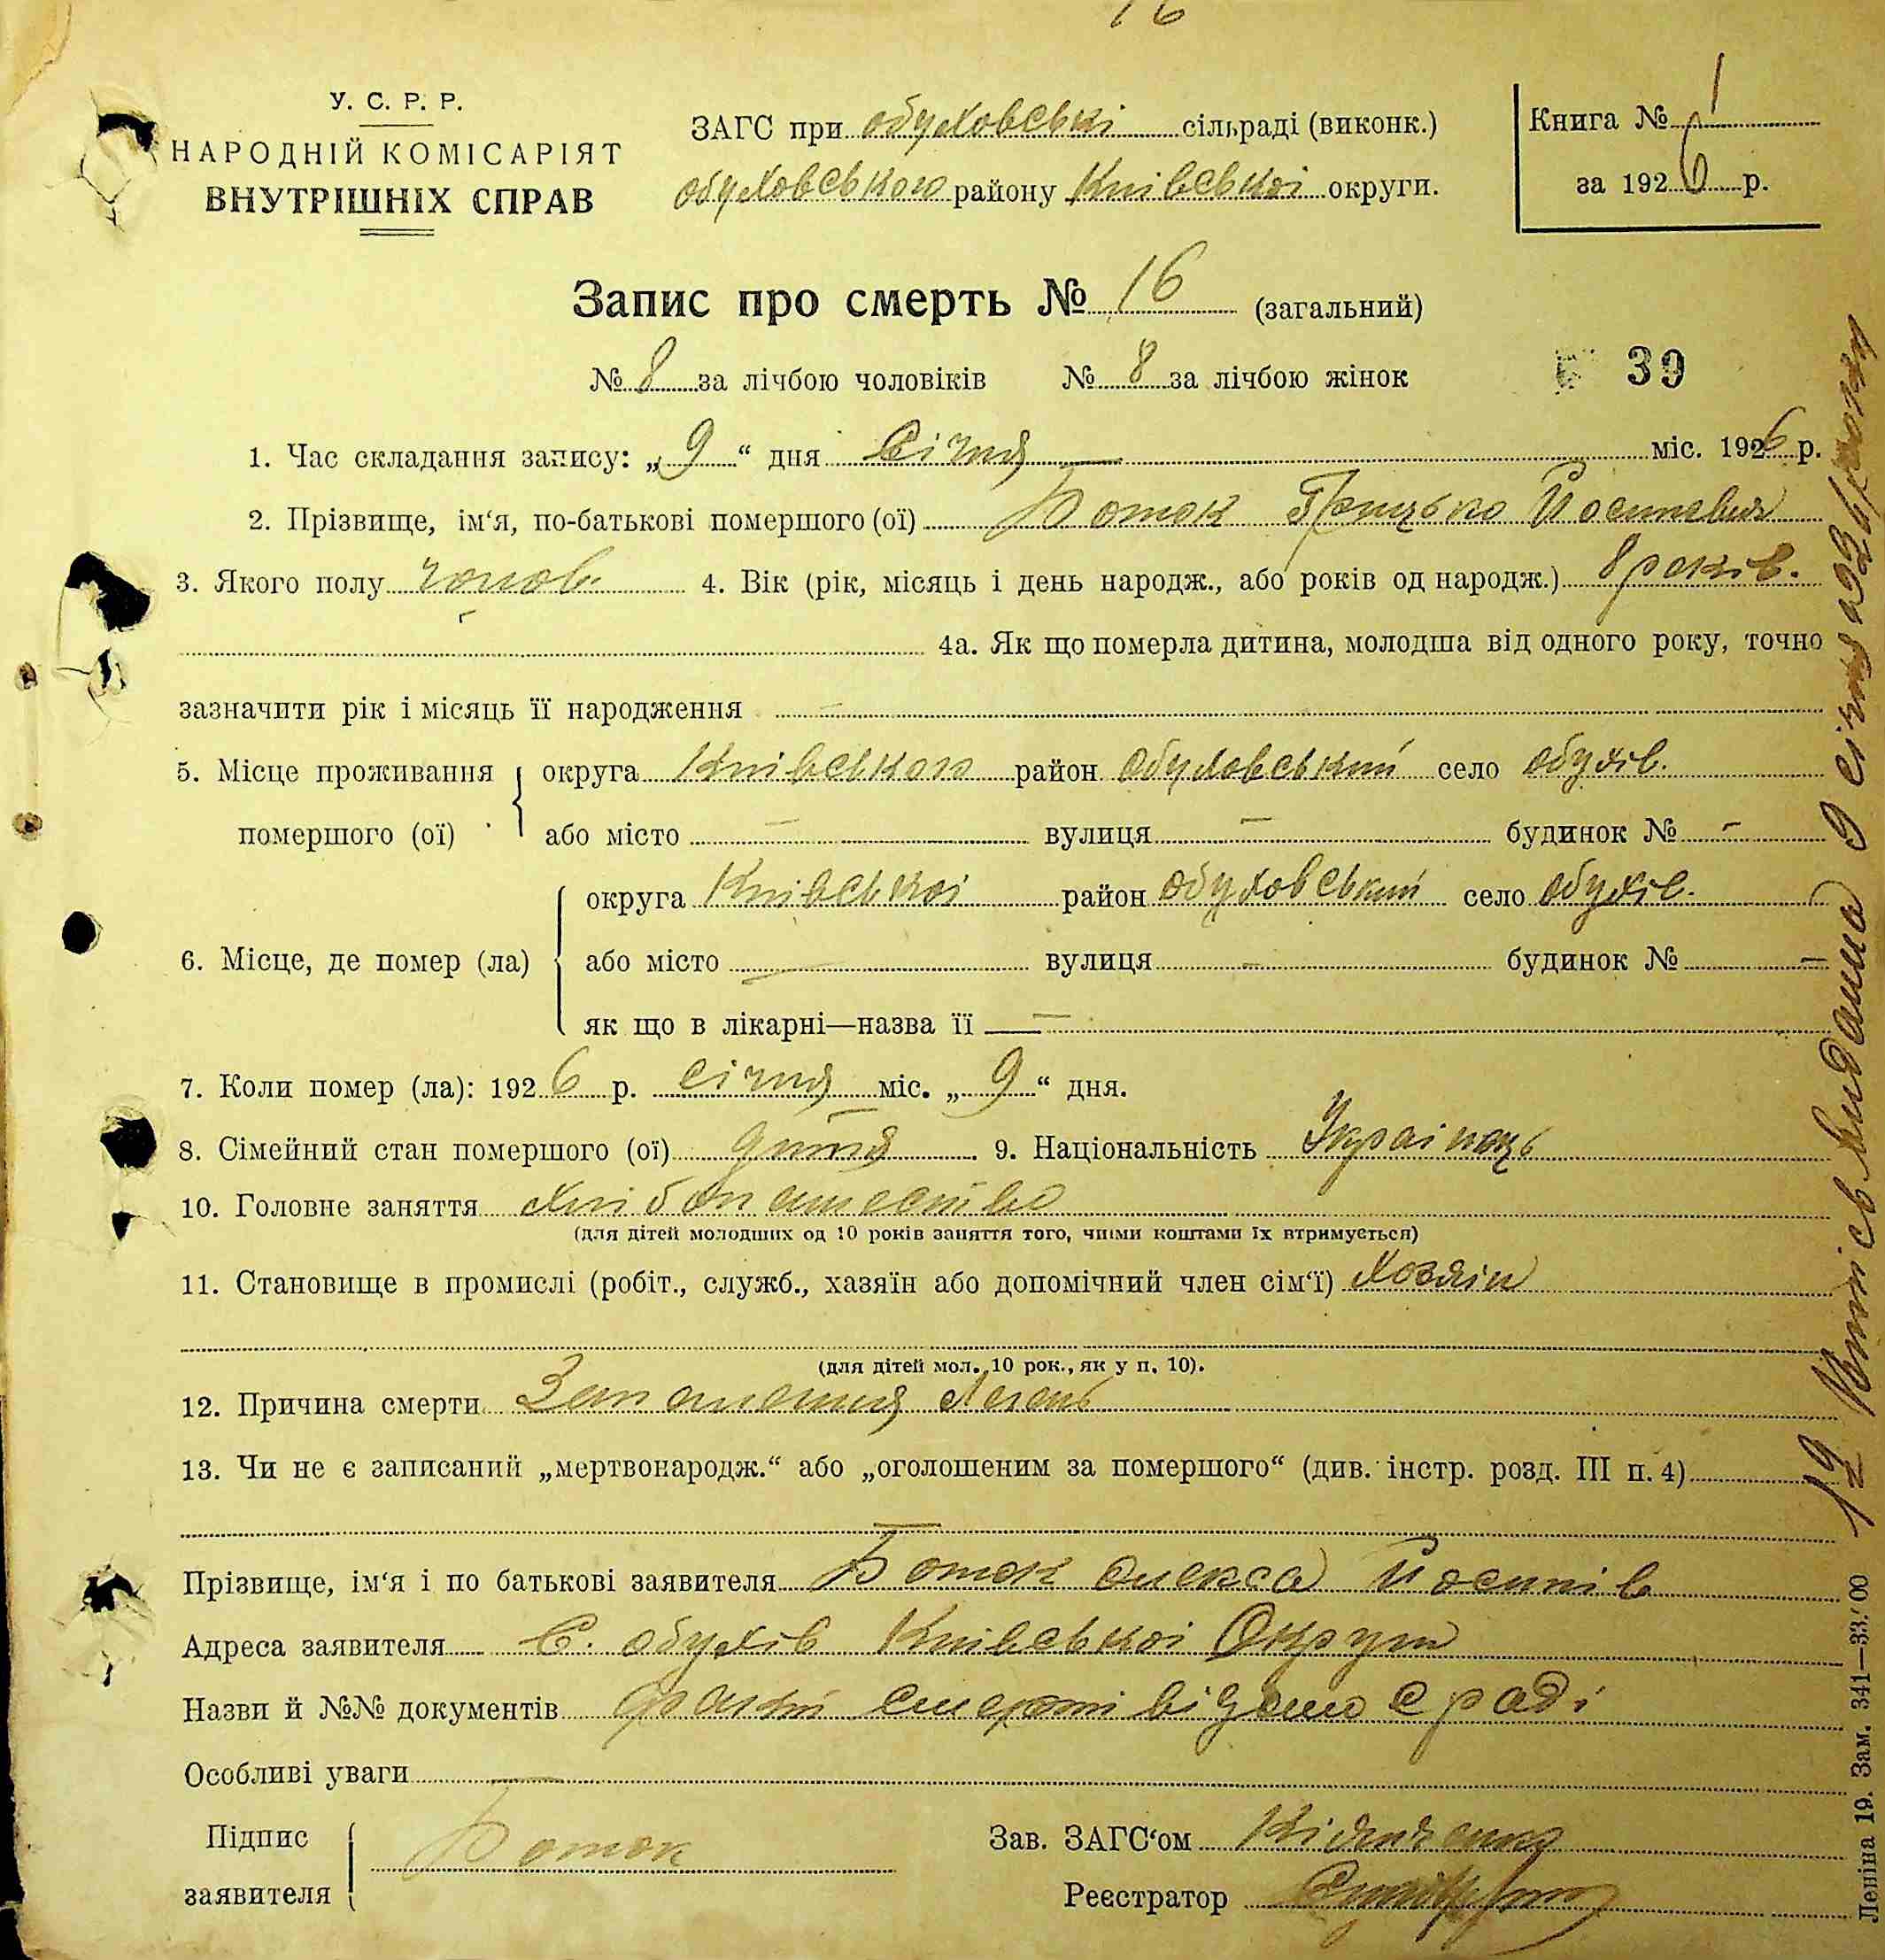 16
У. С. Р. Р.
НАРОДНІЙ КОМІСАРІЯТ
ВНУТРІШНІХ СПРАВ
ЗАГС при обуховські сільраді (виконк.)
обуховського району Київської округи.
Книга № 1
за 1926 р.
Запис про смерть № 16 (загальний)
№ 8 за лічбою чоловіків № 8 за лічбою жінок
39
1. Час складання запису: „9“ дня Січня — міс. 1926 р.
2. Прізвище, ім‘я, по-батькові помершого (ої) Боток Грицько Йосипович
3. Якого полу чолов. 4. Вік (рік, місяць і день народж., або років од народж.) 8 років.
4а. Як що померла дитина, молодша від одного року, точно
зазначити рік і місяць її народження —
5. Місце проживання помершого (ої) округа Київського район обуховський село обухів.
або місто — вулиця — будинок № -
6. Місце, де помер (ла) округа Київської район обуховський село обухів.
або місто — вулиця — будинок № —
як що в лікарні—назва її —
7. Коли помер (ла): 1926 р. січня міс. „9“ дня.
8. Сімейний стан помершого (ої) дитя 9. Національність Українець
10. Головне заняття Хліборобство
(для дітей молодших од 10 років заняття того, чиїми коштами їх втримується)
11. Становище в промислі (робіт., служб., хазяїн або допомічний член сім‘ї) Хозяін
(для дітей мол. 10 рок., як у п. 10).
12. Причина смерти Запалення Легень
13. Чи не є записаний „мертвонародж.“ або „оголошеним за помершого“ (див. інстр. розд. III п. 4)
—
Прізвище, ім‘я і по батькові заявителя Боток Олекса Йосипів
Адреса заявителя С. обухів Київської Округи
Назви й №№ документів факт смерти відомо с раді
Особливі уваги —
Підпис заявителя Боток
Зав. ЗАГС‘ом
Реєстратор
12 Витяг видана 9 січня 1926 року
Леніна 19. Зам. 341—33.‘00